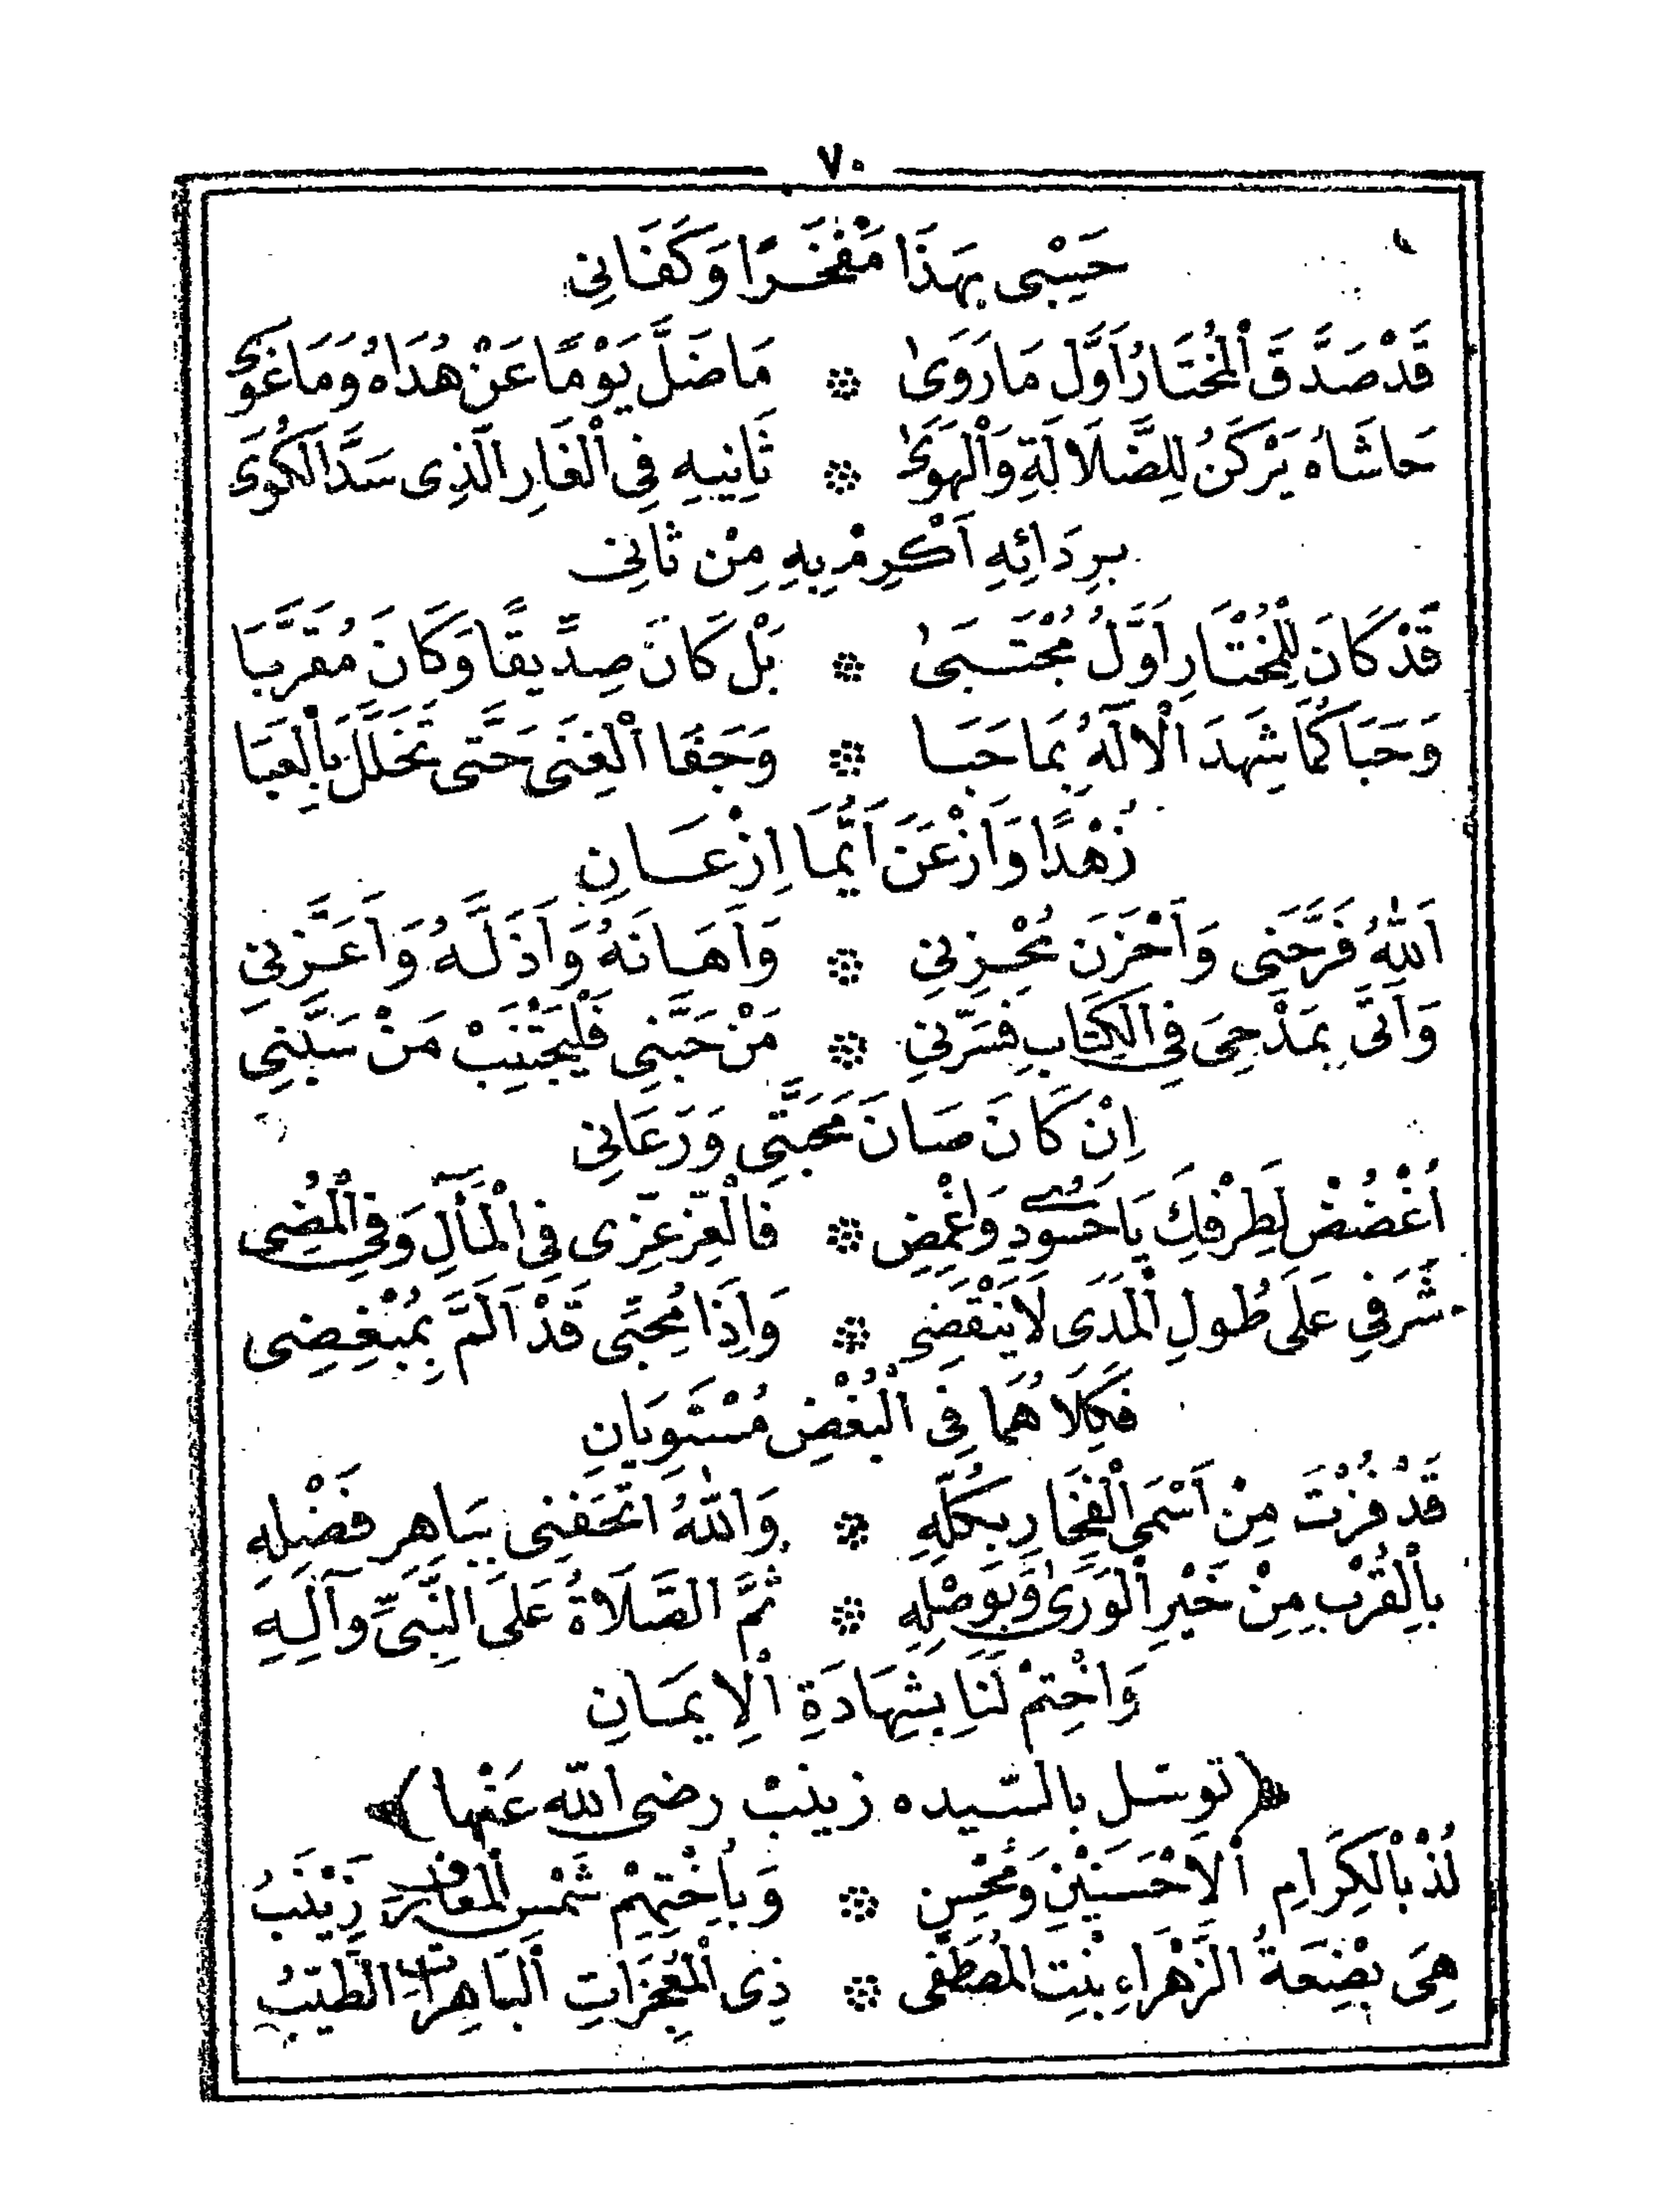 ٧٠
حَسْبِى بِهَذَا مَفْخَرًا وَكَفَانِى
قَدْ صَدَّقَ الْمُخْتَارُ اَوَّلَ مَارَوَىٰ ۞ مَاضَلَّ يَوْمًا عَنْ هُدَاهُ وَمَاغَوَىٰ
حَاشَاهُ يَرْكَنُ لِلضَّلَالَةِ وَالْهَوَىٰ ۞ ثَانِيهِ فِى الْغَارِ الَّذِى سَدَّ الْكُوَىٰ
بِرِدَائِهِ اَكْرِمْ بِهِ مِنْ ثَانِى
قَدْ كَانَ لِلْمُخْتَارِ اَوَّلُ مُجْتَبَىٰ ۞ بَلْ كَانَ صِدِّيقًا وَكَانَ مُقَرَّبَا
وَحَبَا كَمَا شَهِدَ الْالَهُ بِمَا حَبَا ۞ وَجَفَا الْغِنَى حَتَّى تَخَلَّلَ بِالْعَبَا
زُهْدًا وَاَزْعَنَ اَيَّمَا اِزْعَانِ
اَللهُ فَرَّحَنِى وَاَحْزَنَ مُحْزِنِى ۞ وَاَهَانَهُ وَاَذَلَّهُ وَاَعَزَّنِى
وَاَتَى بِمَدْحِىَ فِى الْكِتَابِ فَسَرَّنِى ۞ مَنْ حَبَّنِى فَلْيَجْتَنِبْ مَنْ سَبَّنِى
اِنْ كَانَ صَانَ مَحَبَّتِى وَرَعَانِى
اُغْضُضْ لِطَرْفِكَ يَاحَسُودِى وَاغْمِضِ ۞ فَالْعِزُّ عِزِّى فِى الْمَآلِ وَفِى الْمُضِى
شَرَفِى عَلَى طُولِ الْمَدَى لَايَنْقَضِى ۞ وَاِذَا مُحِبِّى قَدْ اَلَمَّ بِمُبْغِضِى
فَكِلَاهُمَا فِى الْبُغْضِ مُسْتَوِيَانِ
قَدْ فُزْتَ مِنْ اَسْمَى الْفَخَارِ بِكُلِّهِ ۞ وَاللهُ اَتْحَفَنِى بِبَاهِرِ فَضْلِهِ
بِالْقُرْبِ مِنْ خَيْرِ الْوَرَىٰ وَبِوَصْلِهِ ۞ ثُمَّ الصَّلَاةُ عَلَى النَّبِىِّ وَآلِهِ
وَاخْتِمْ لَنَا بِشَهَادَةِ الْاِيمَانِ
﴿توسل بالسيده زينب رضى الله عنها﴾
لُذْ بِالْكِرَامِ الْاَحْسَنَيْنِ وَمُحْسِنِ ۞ وَبِاُخْتِهِمْ شَمْسِ الْمَعَارِفِ زَيْنَبُ
هِىَ بِضْعَةُ الزَّهْرَاءِ بِنْتِ الْمُصْطَفَى ۞ ذِى الْمُعْجِزَاتِ الْبَاهِرَاتِ الطَّيِّبُ